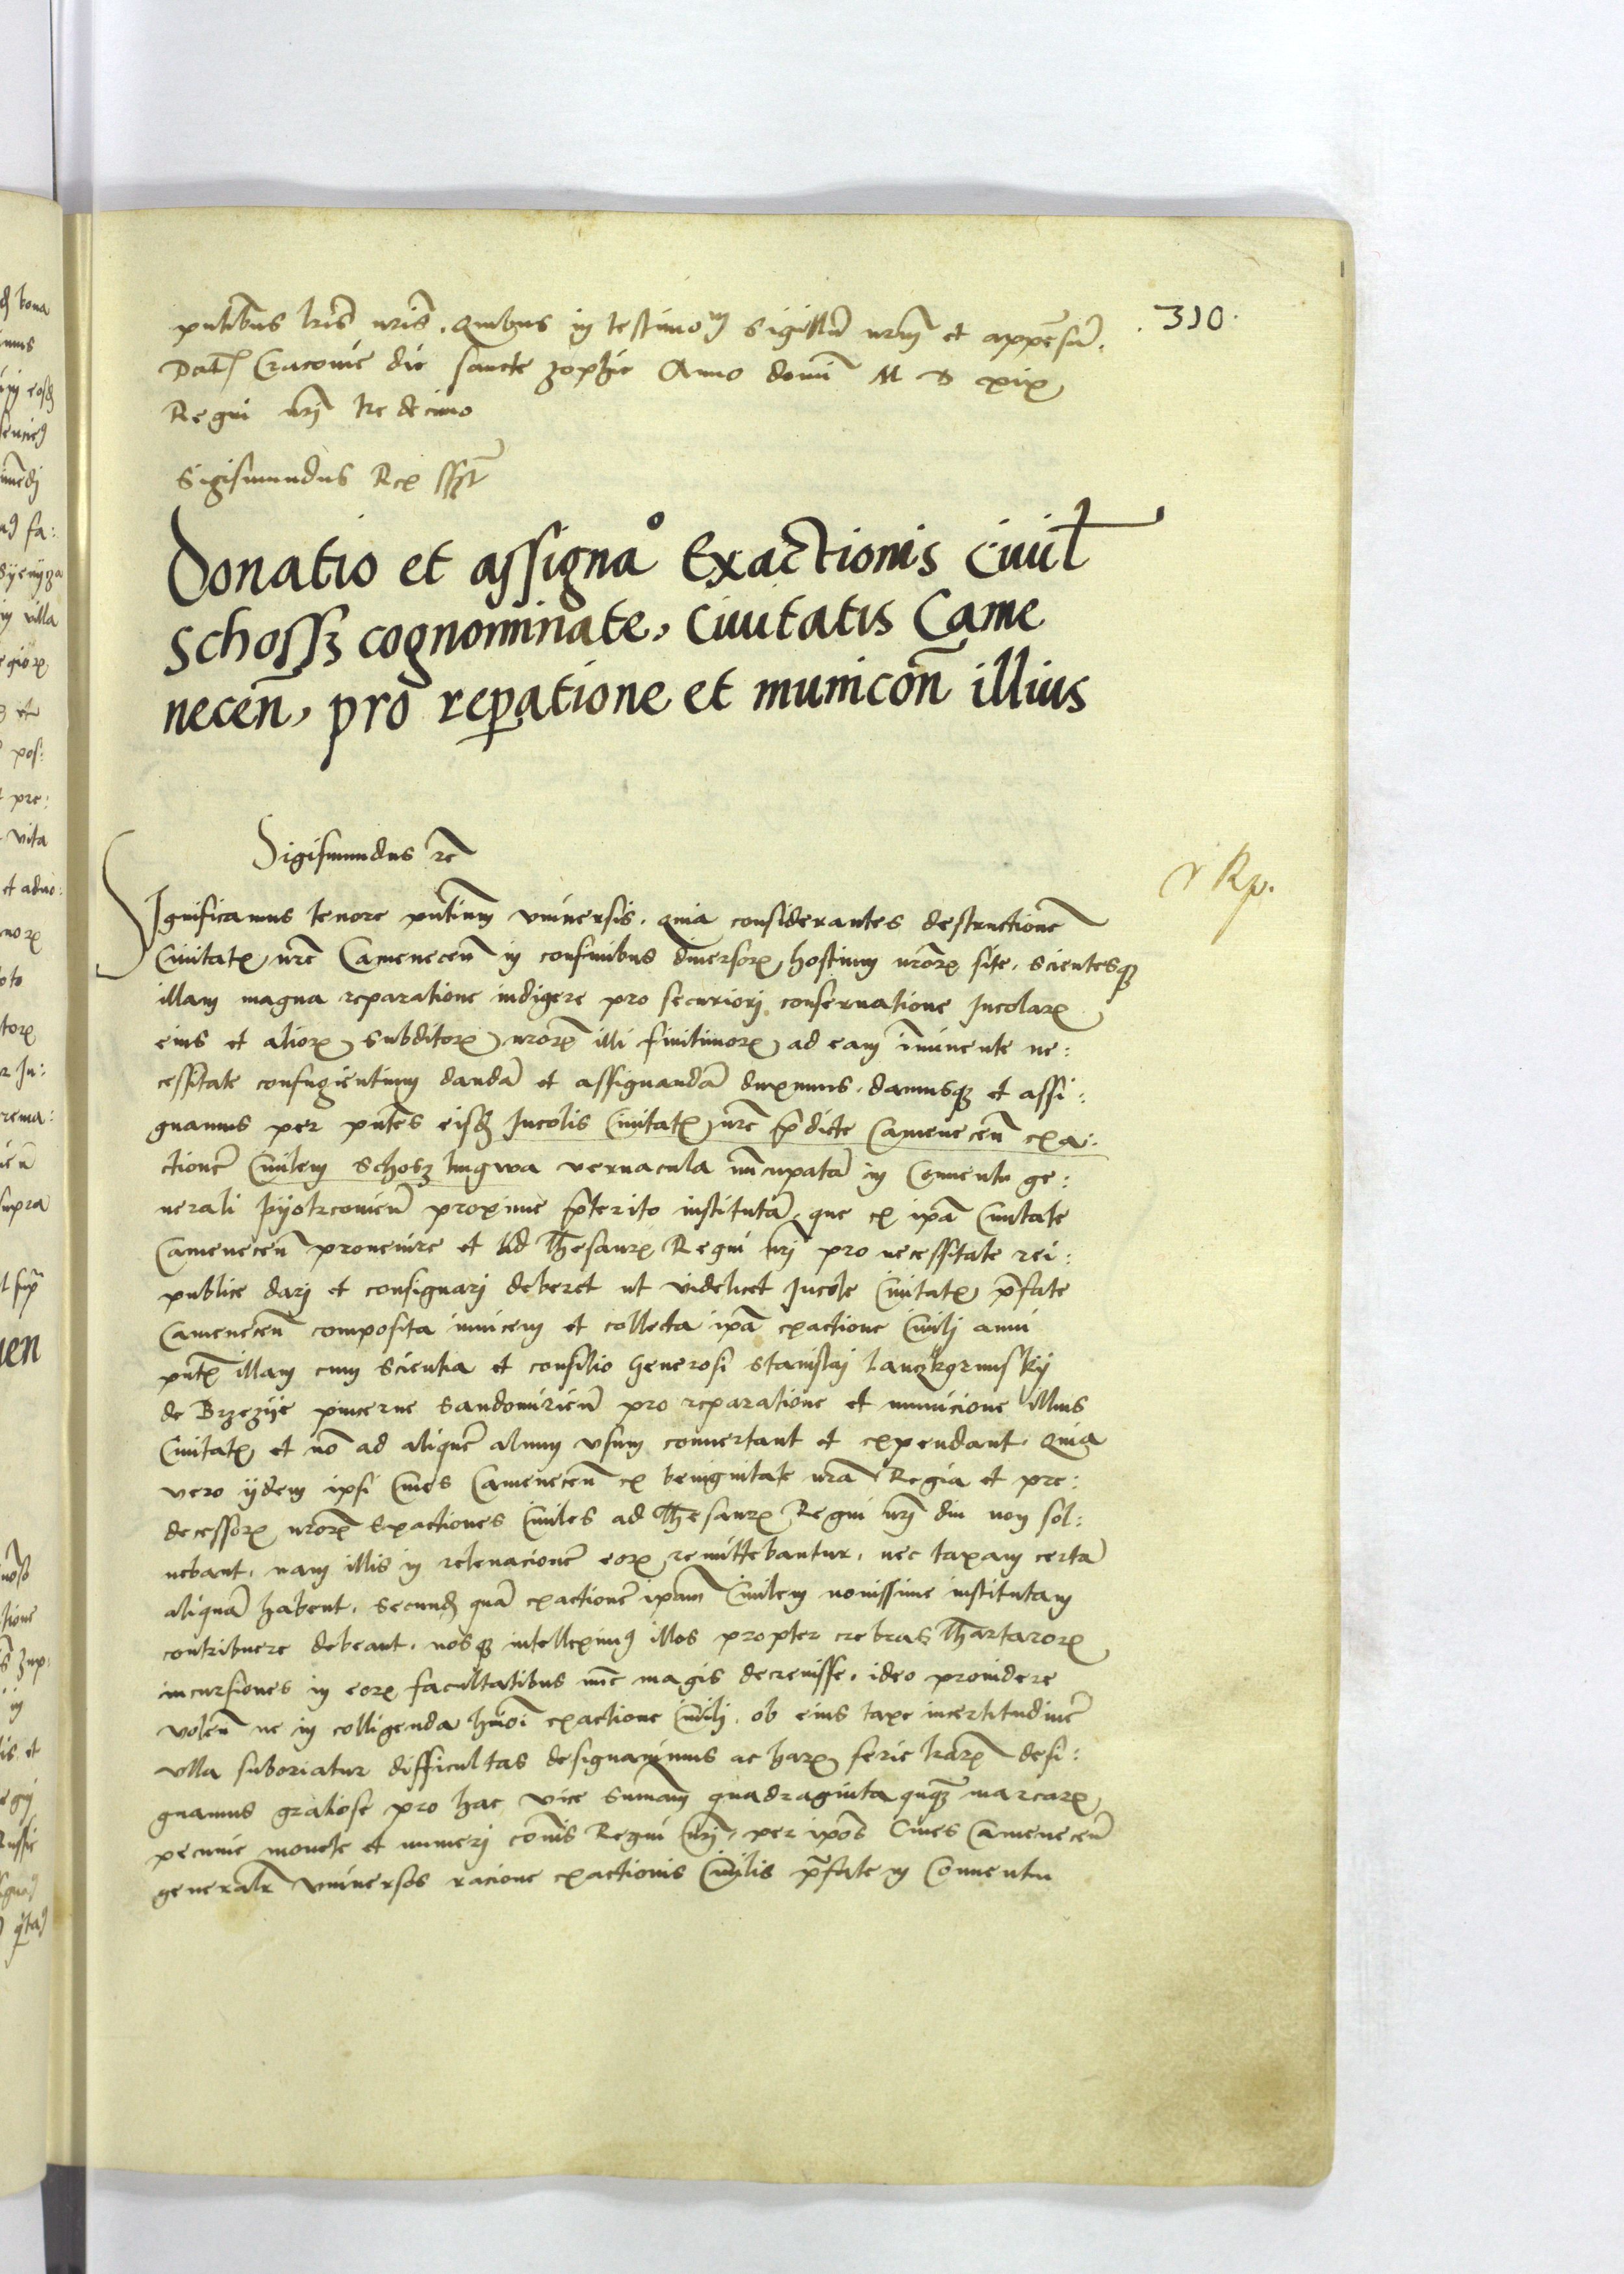 310.
pntibus lris nris. Quibus in testimom Sigillu nrm et appesu.
Dat Cracovie die sancte zophie Anno domi M D xix
Regni nri tredecimo
Sigismundus Rex sspt
Donatio et assignao Exactionis Ciuil
Schossz cognominate, Ciuitatis Came
necen, pro repatione et municon illius
Sigismundus rc
Rp.
Significamus tenore pntium vniuersis. quia considerantes destructione
Ciuitatis nre Camenecen in confinibus diuersorz hostium nrorz site. scientesqz
illam magna reparatione indigere pro securiorj conseruatione Incolarz
eius et aliorz subditorz nrorz illi finitimorz ad eam iminente ne:
cessitate confugientium danda et assignanda duximus. damusqz et assi:
gnamus per pntes eisd Incolis Ciuitatis nre pdicte Camenecen exa:
ctione Ciuilem schosz lingwa vernacula nuncupata in Conuentu ge:
nerali Pyotrcouien proxime pterito instituta, que ex ipa Ciuitate
Camenecen prouenire et ad Thesaurz Regni nri pro necessitate rei:
publice darj et consignarj deberet ut videlicet Incole Ciuitatis pfate
Camenecen composita inuicem et collecta ipa exactione Ciuilj anni
pntis illam cum scientia et consilio Generosi Stanislaj Lanczkorunskij
de Brzezije pincerne Sandomirien pro reparatione et municione illius
Ciuitatis et no ad alique alium vsum conuertant et expendant. Quia
vero ijdem ipsi Ciues Camenecen ex benignitate nra Regia et pre:
decessorz nrorz Exactiones Ciuiles ad Thesaurz Regni nri diu non sol:
uebant. nam illis in releuacione eorz remittebantur. nec taxam certa
aliqua habent. secund qua exactione ipam Ciuilem nouissime institutam
contribuere debeant. nosqz intelleximus illos propter crebras Thartarorz
incursiones in eorz facultatibus nuc magis decreuisse. ideo prouidere
volen ne in colligenda hmoi exactione Ciuilj. ob eius taxe incertitudine
vlla suboriatur difficultas designauimus ac harz serie lrarz desi:
gnamus gratiose pro hac vice sumam quadraginta quqz marcarz
pecunie monete et numerj cois Regni nri, per ipos Ciues Camenecen
generalr vniuersos racione exactionis Ciuilis pfate in Conuentu